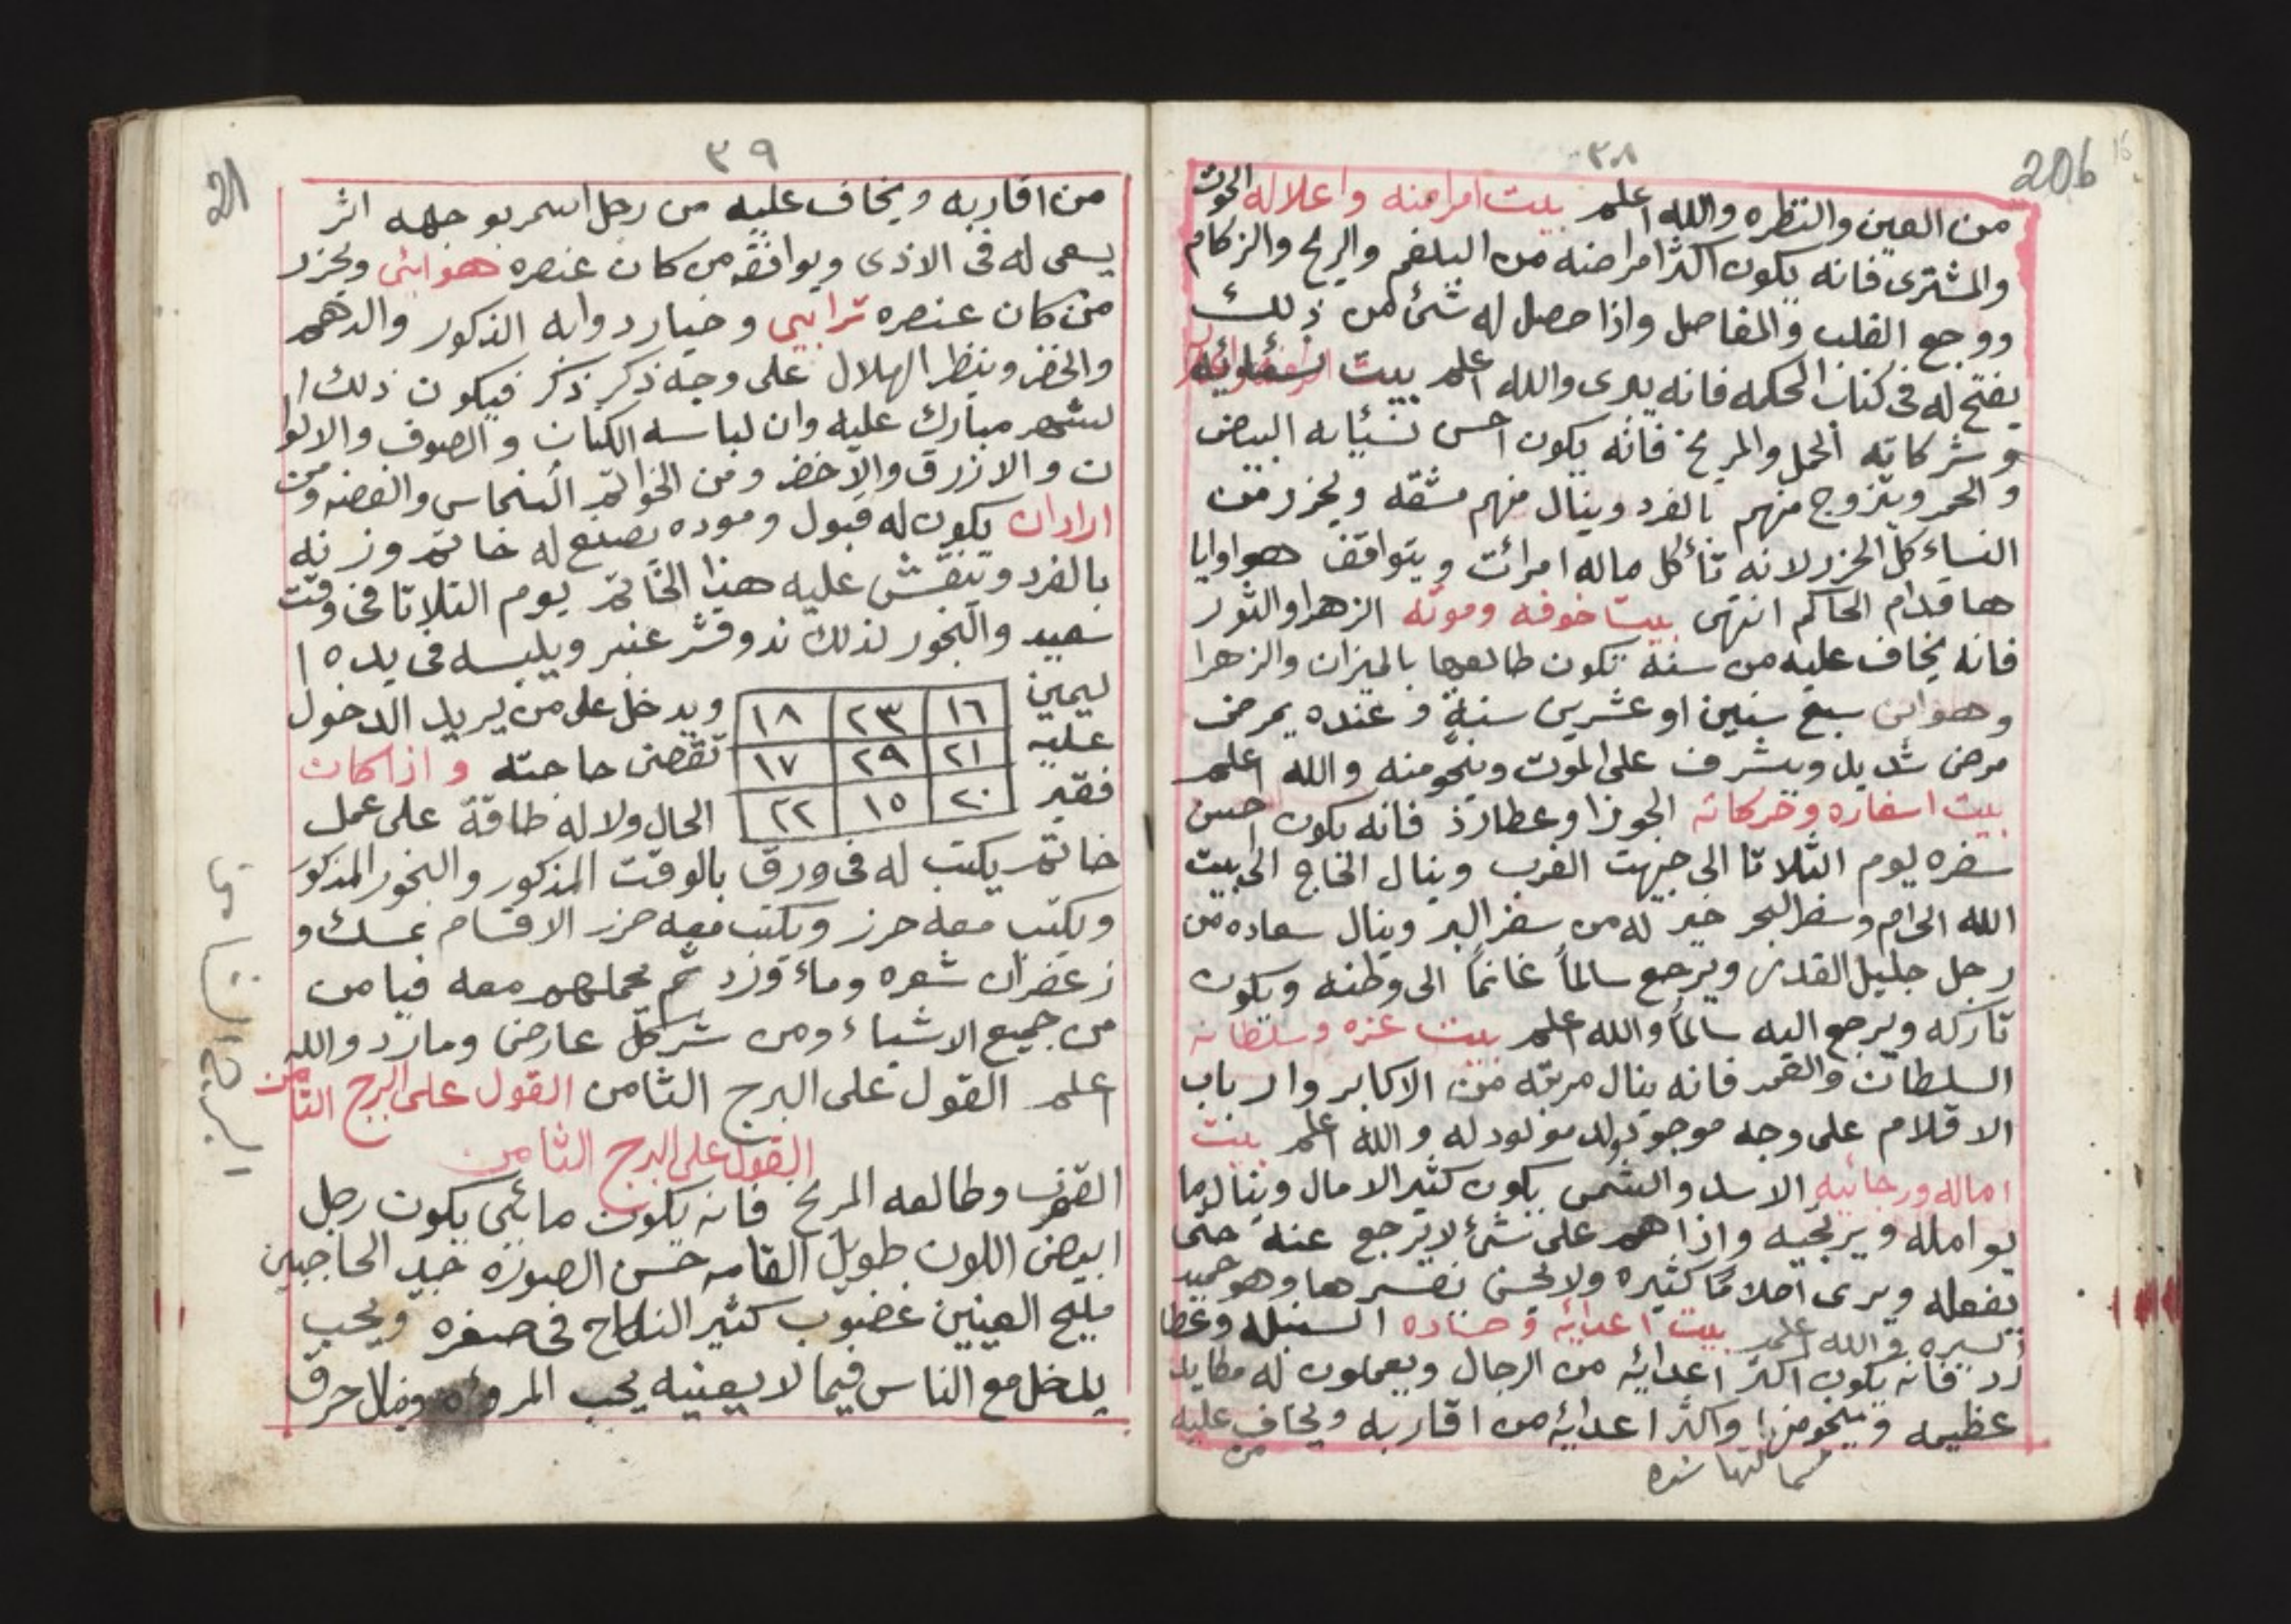 ٣٨
206
16
من العين والنظره والله اعلم بيت امراضه واعلاله الحوت
والمشترى فانه يكون اكثر امراضه من البلغم والريح والزكام
ووجع القلب والمفاصل واذا حصل له شئ من ذلك
يفتح له فى كتاب الحكمه فانه يبرى والله اعلم بيت نسائه
و شركاته الحمل والمريخ فانه يكون احسن نسايه البيض
و الحمر ويتزوج منهم بالفرد وينال منهم مشقه ويحزر من
النساء كل الحزر لانه تأكل ماله امرأت ويتوافف هو اوايا
ها قدام الحاكم انتهى بيت خوفه وموته الزهرا والثور
فانه يخاف عليه من سنه تكون طالعها بالميزان والزهرا
وهو ابن سبع سنين او عشرين سنة و عنده يمرض
مرض شديد ويشرف على الموت وينجو منه والله اعلم
بيت اسفاره وحركاته الجوزا وعطارد فانه يكون احسن
سفره ليوم الثلاتا الى جيهت الغرب وينال الحاج الى بيت
الله الحرام وسفر البحر خير له من سفر البر وينال سعاده من
رجل جليل القدر ويرجع سالماً غانماً الى وطنه ويكون
تاركه ويرجع اليه سالماً والله اعلم بيت عزه وسلطانه
السلطان والقمر فانه ينال مرتبه من الاكابر وارباب
الاقلام على وجه موجو بولد مولود له والله اعلم بيت
اماله ورجائيه الاسد والشمس يكون كثير الامال وينال ما
يوامله ويرتجيه واذا هم على شئ لا يرجع عنه حتى
يفعله ويرى احلاماً كثيره ولا يحسن تفسيرها وهو حميد
السيره والله اعلم بيت اعدائه وحساده السنبله وعطا
رد فانه يكون اكثر اعدائه من الرجال ويعملون له مكايد
عظيمه وينجو منها واكثر اعدائه من اقاربه ويخاف عليه
من
٣٩
21
من اقاربه ويخاف عليه من رجل اسمر بوجهه اثر
يسعى له فى الاذى ويوافقه من كان عنصره هوائى ويحزر
من كان عنصره ترابيى وخيار دوابه الذكور والدهم
والخضر وينظر الهلال على وجه ذكر ذكر فيكون ذلك ا
لشهر مبارك عليه وان لباسه الكتان والصوف والالوا
ن والازرق والاخضر ومن الخواتم النحاس والفضه ومن
اراد ان يكون له قبول وموده يصنع له خاتم وزنه
بالفرد وينقش عليه هذا الخاتم يوم الثلاتا فى وقت
سعيد والبخور لذلك ند وقشر عنبر ويلبسه فى يده ا
ليمين ١٦ ٢٣ ١٨ ويدخل على من يريد الدخول
عليه ٢١ ٢٩ ١٧ تقضى حاجته واذا كان
فقير ٢٠ ١٥ ٢٢ الحال ولا له طاقة على عمل
خاتم يكتب له فى ورق بالوقت المذكور والبخور المذكور
ويكتب معه حرز ويكتب معه حرز الاقسام بمسك و
زعفران شعره وماء ورد ثم يحملهم معه فيامن
من جميع الاشياء ومن شر كل عارض ومارد والله
اعلم القول على البرج الثامن القول على البرج الثامن
القول على البرج الثامن
العقرب وطالعه المريخ فانه يكون مائيى يكون رجل
ابيض اللون طويل القامه حسن الصورة جيد الحاجبين
مليح العينين غضوب كثير النكاح فى صغره ويحب
يدخل مع الناس فيما لا يعنيه يحب المروئه